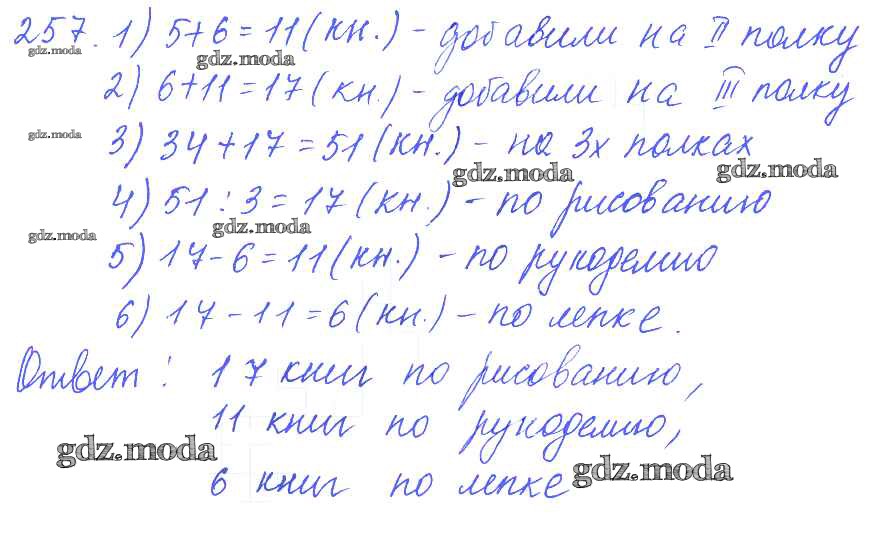 257. 1) 5+6=11 (кн.) - добавили на II полку
gdz.moda
gdz.moda
2) 6+11=17 (кн.) - добавили на III полку
gdz.moda
3) 34+17=51 (кн.) - на 3х полках
gdz.moda
gdz.moda
4) 51:3=17 (кн.) - по рисованию
gdz.moda
gdz.moda
5) 17-6=11 (кн.) - по рукоделию
6) 17-11=6 (кн.) - по лепке.
Ответ: 17 книг по рисованию,
11 книг по рукоделию,
gdz.moda
6 книг по лепке
gdz.moda